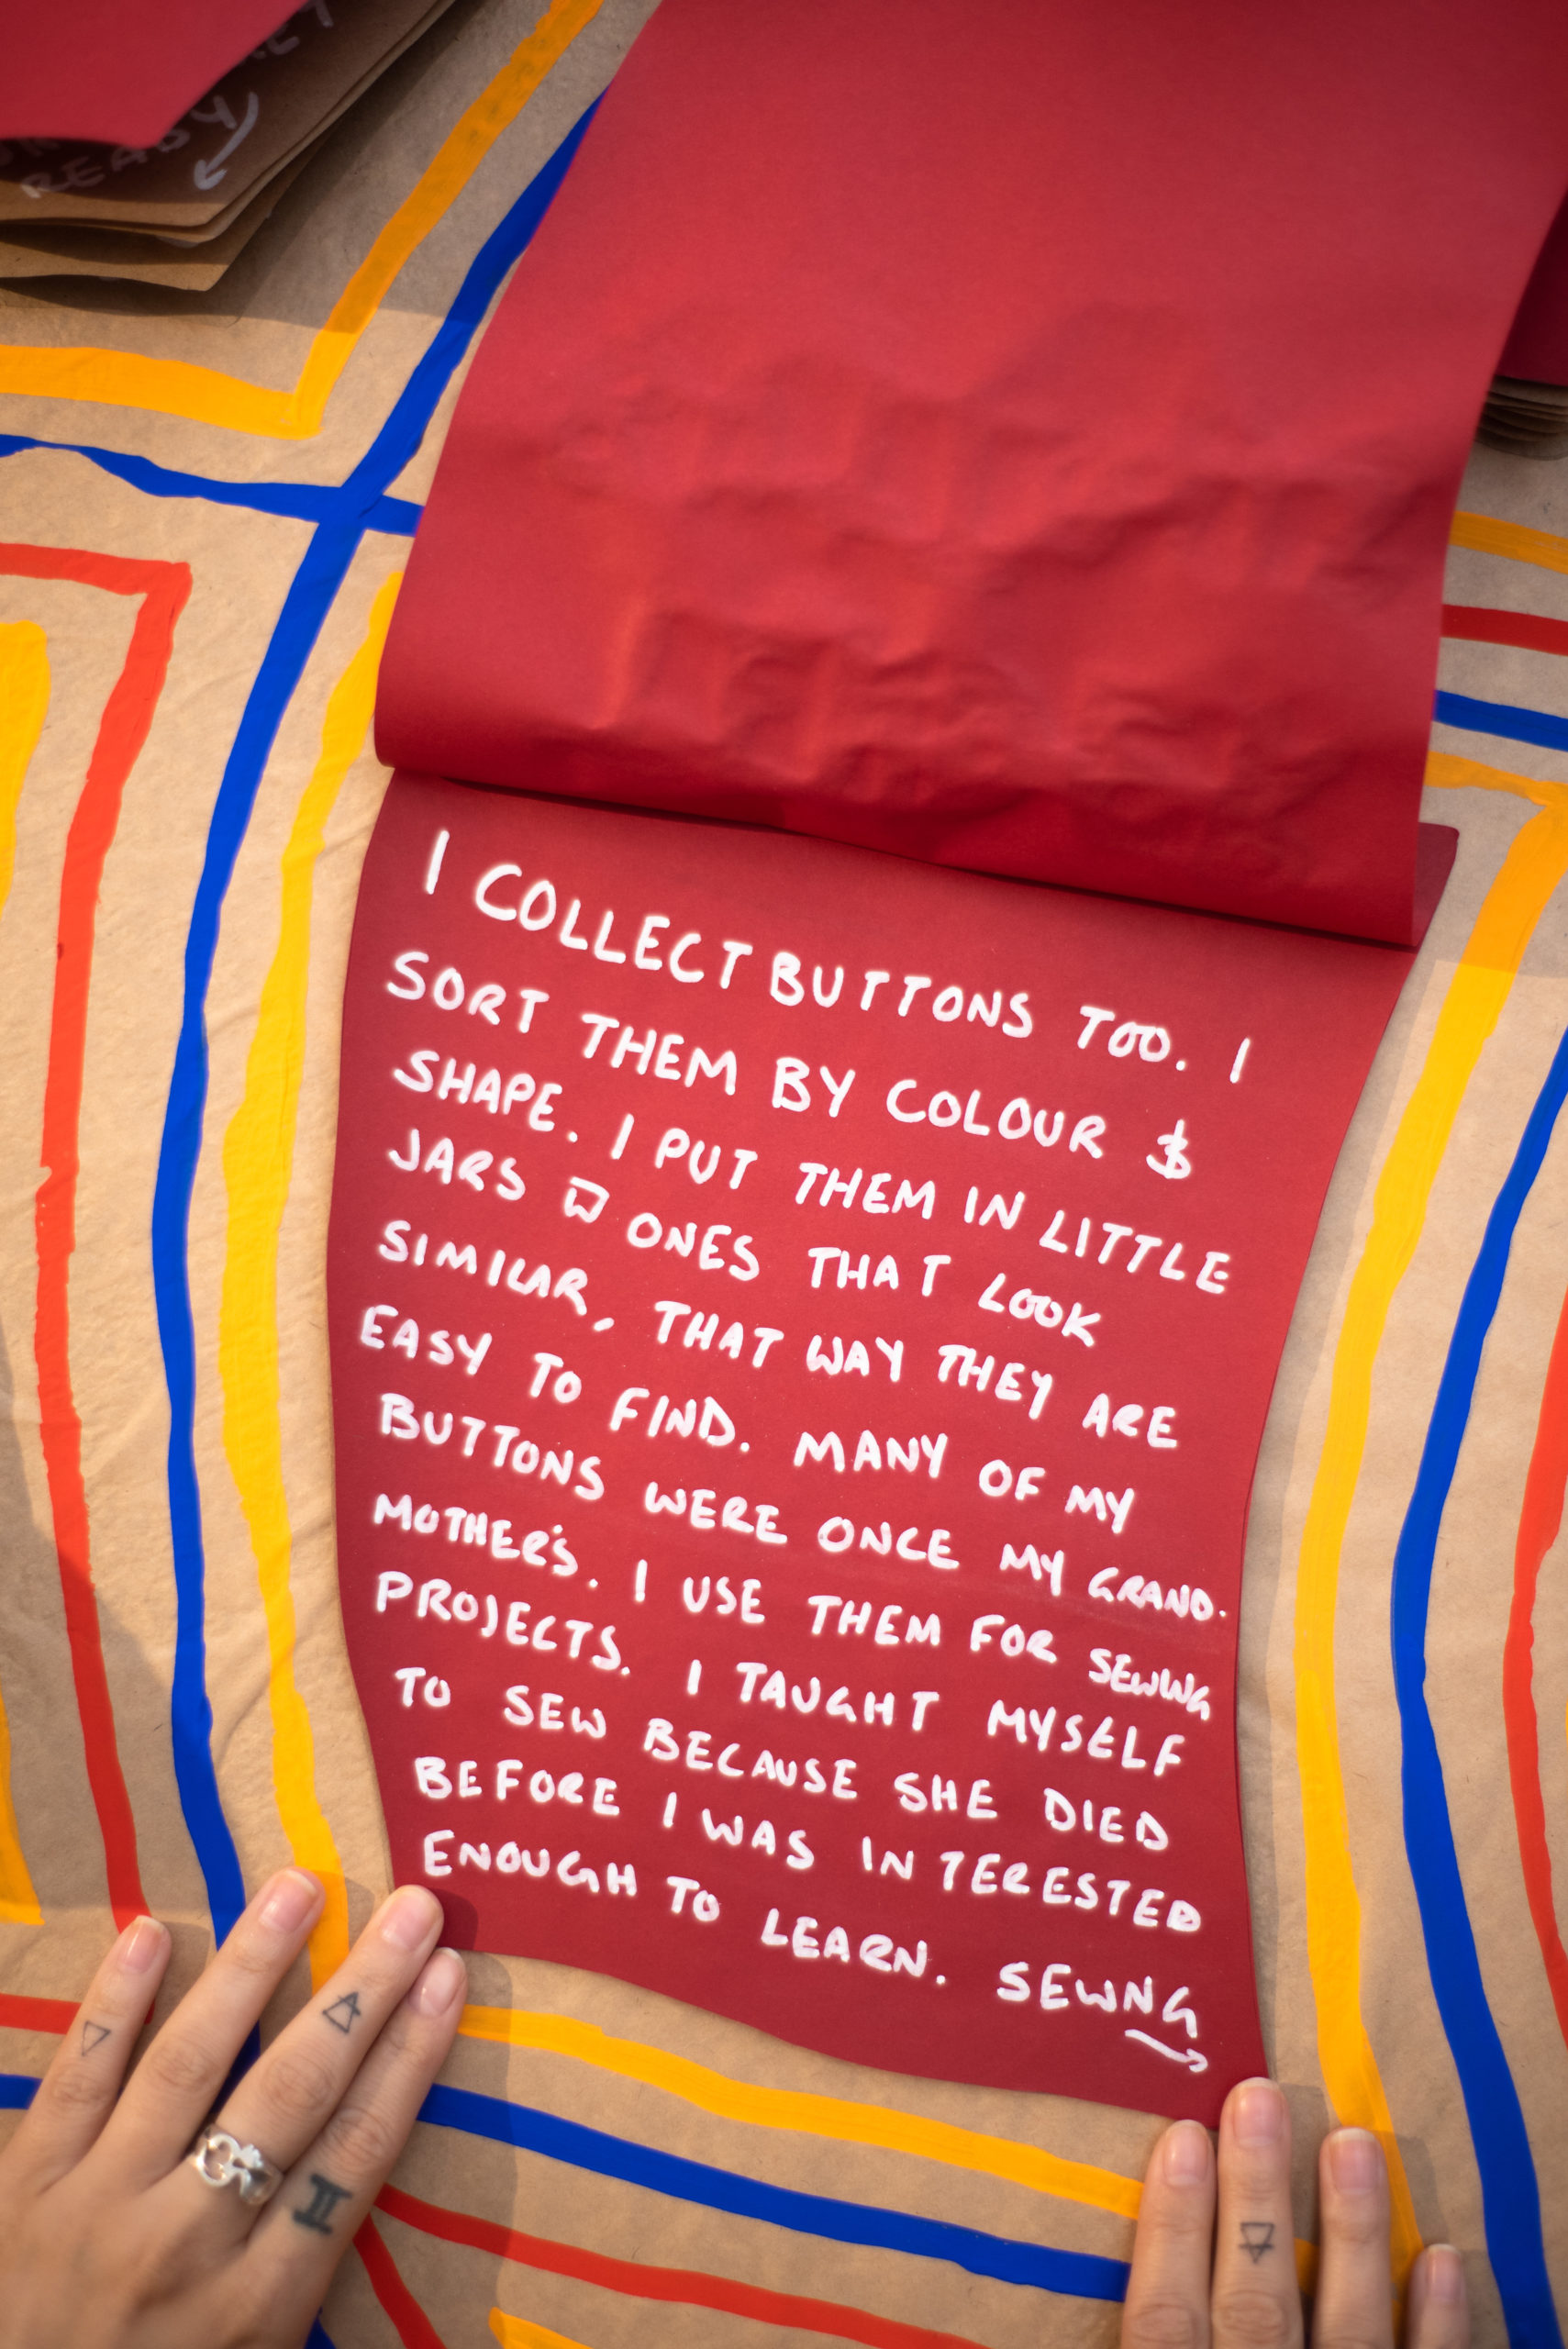 READY
I COLLECT BUTTONS TOO. I
SORT THEM BY COLOUR $
SHAPE. I PUT THEM IN LITTLE
JARS ONES THAT LOOK
SIMILAR, THAT WAY THEY ARE
EASY TO FIND. MANY OF MY
BUTTONS WERE ONCE MY GRAND.
MOTHER'S. I USE THEM FOR SEWNG
PROJECTS. I TAUGHT MYSELF
TO SEW BECAUSE SHE DIED
BEFORE I WAS INTERESTED
ENOUGH TO LEARN. SEWNG
→
II